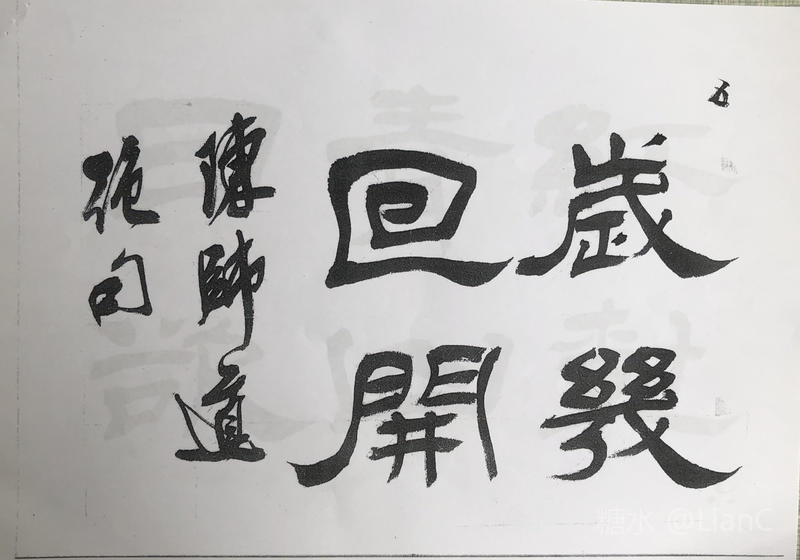 五
歲幾
回開
陳師道
絶句
糖水 @LianC